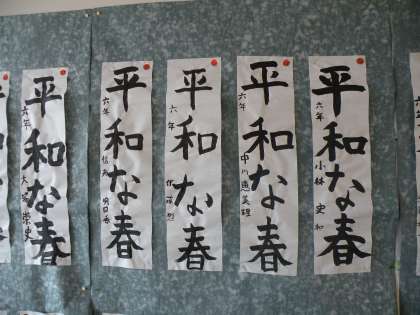 平和な春
六年
小林 史和
平和な春
六年
中川恵美理
平和な春
六年
平和な春
六年
平和な春
六年